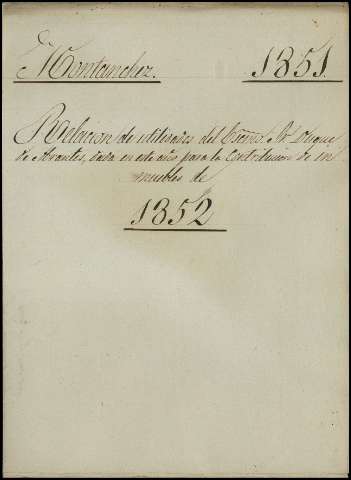 Montanchez. 1851.
Relacion de utilidades del Excmo. Sr. Duque
de Abrantes, dada en este año para la Contribucion de in
muebles de
1852